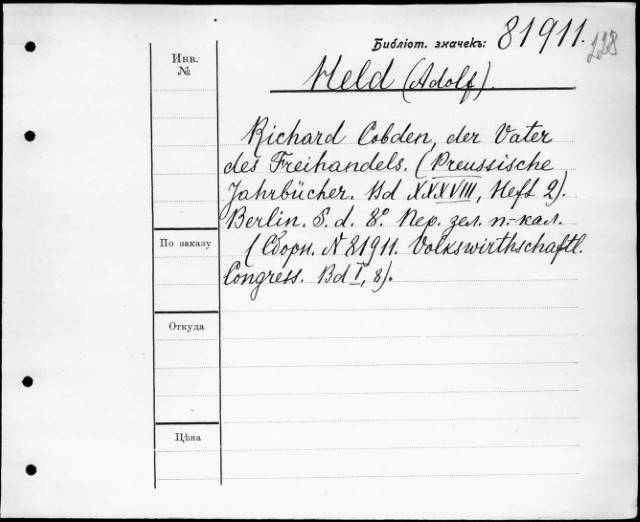 Библіот. значекъ: 81911.
228
Инв. №
Held (Adolf).
Richard Cobden, der Vater
des Freihandels. (Preussische
Jahrbücher. Bd XXXVIII, Heft 2).
Berlin. S. d. 8°. Пер. зел. п.-кал.
По заказу
(Сборн. № 81911. Volkswirthschaftl.
Congress. Bd I, 8).
Откуда
Цѣна